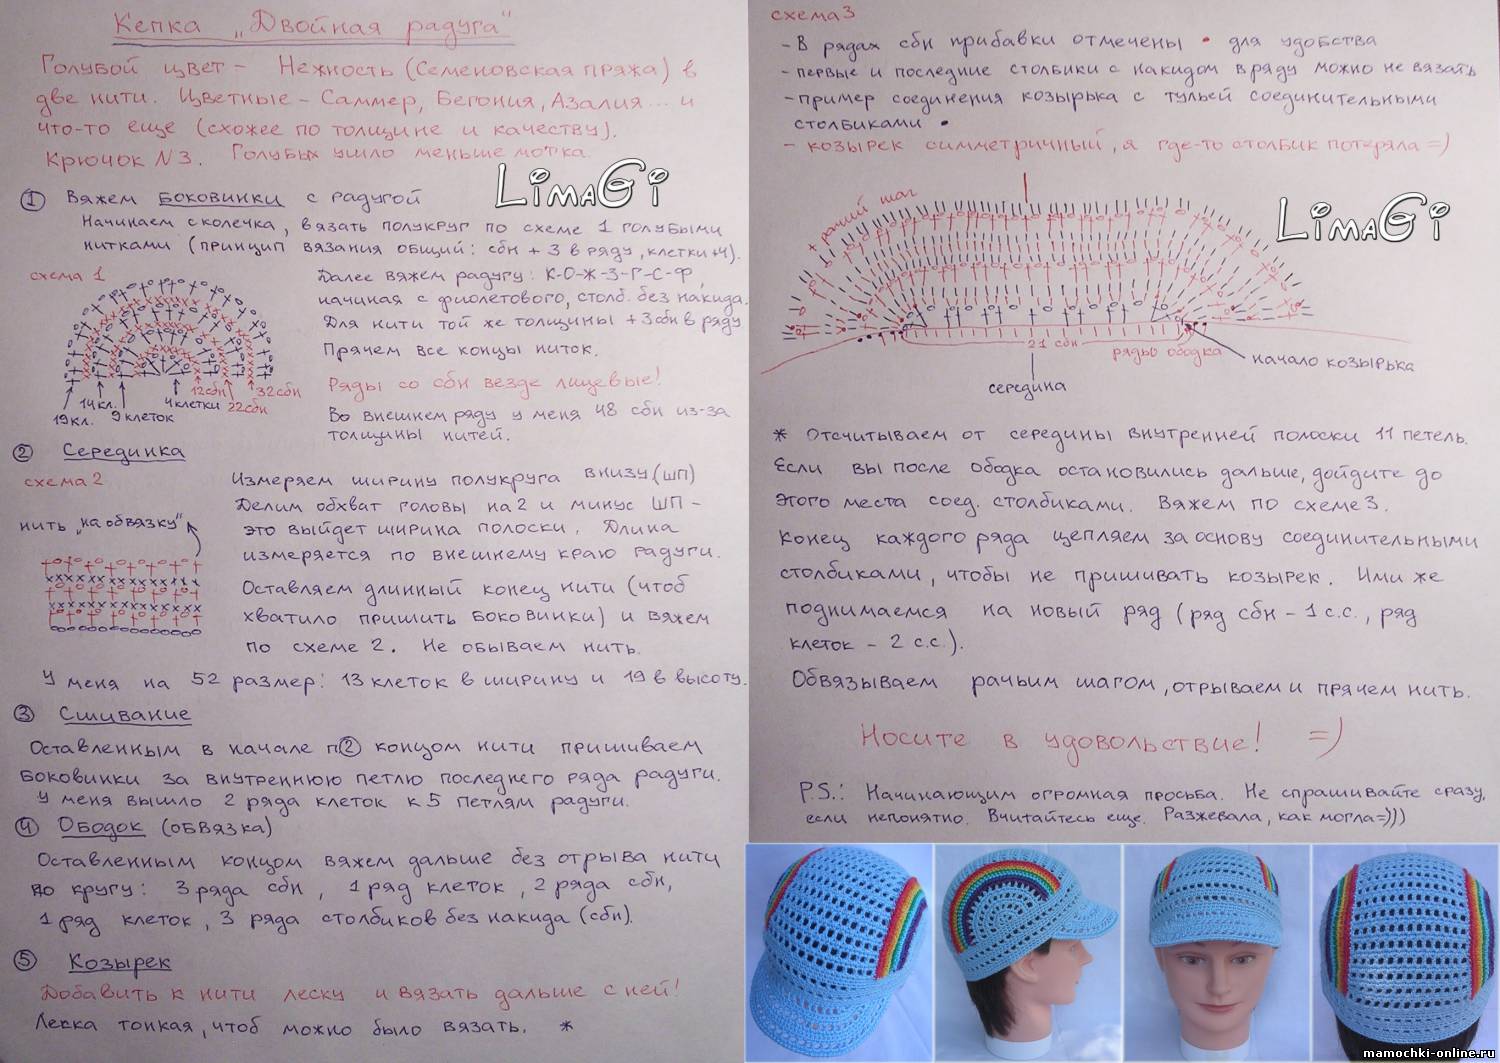 Кепка „Двойная радуга"
Голубой цвет – Нежность (Семеновская пряжа) в
две нити. Цветные – Саммер, Бегония, Азалия... и
что-то еще (схожее по толщине и качеству).
Крючок N3. Голубых ушло меньше мотка.
LimaGi
① Вяжем боковинки с радугой
Начинаем с колечка, вязать полукруг по схеме 1 голубыми
нитками (принцип вязания общий: сбн + 3 в ряду, клетки +4).
схема 1
Далее вяжем радугу: К-О-Ж-З-Г-С-Ф,
начиная с фиолетового, столб. без накида.
Для нити той же толщины + 3 сбн в ряду
Прячем все концы ниток.
Ряды со сбн везде лицевые!
Во внешнем ряду у меня 48 сбн из-за
толщины нитей.
19 кл. 14 кл. 9 клеток 4 клетки 12 сбн 22 сбн 32 сбн
② Серединка
схема 2
нить „на обвязку"
Измеряем ширину полукруга внизу (ШП)
Делим обхват головы на 2 и минус ШП –
это выйдет ширина полоски. Длина
измеряется по внешнему краю радуги.
Оставляем длинный конец нити (чтоб
хватило пришить боковинки) и вяжем
по схеме 2. Не обываем нить.
У меня на 52 размер: 13 клеток в ширину и 19 в высоту.
③ Сшивание
Оставленным в начале п② концом нити пришиваем
боковинки за внутреннюю петлю последнего ряда радуги.
У меня вышло 2 ряда клеток к 5 петлям радуги.
④ Ободок (обвязка)
Оставленным концом вяжем дальше без отрыва нити
по кругу: 3 ряда сбн, 1 ряд клеток, 2 ряда сбн,
1 ряд клеток, 3 ряда столбиков без накида (сбн).
⑤ Козырек
Добавить к нити леску и вязать дальше с ней!
Леска тонкая, чтоб можно было вязать. *
схема 3
- В рядах сбн прибавки отмечены • для удобства
- первые и последние столбики с накидом в ряду можно не вязать
- пример соединения козырька с тульей соединительными
столбиками •
- козырек симметричный, я где-то столбик потеряла =)
+ рачий шаг
LimaGi
21 сбн
ряды ободка
начало козырька
середина
* Отсчитываем от середины внутренней полоски 11 петель.
Если вы после ободка остановились дальше, дойдите до
этого места соед. столбиками. Вяжем по схеме 3.
Конец каждого ряда цепляем за основу соединительными
столбиками, чтобы не пришивать козырек. Ими же
поднимаемся на новый ряд (ряд сбн – 1 с.с., ряд
клеток – 2 с.с.).
Обвязываем рачьим шагом, отрываем и прячем нить.
Носите в удовольствие! =)
P.S.: Начинающим огромная просьба. Не спрашивайте сразу,
если непонятно. Вчитайтесь еще. Разжевала, как могла=)))
mamochki-online.ru